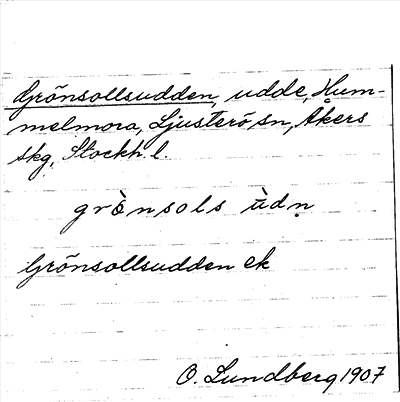 Grönsollsudden, udde, Hum-
melmora, Ljusterö, sn, Åkers
skg, Stockh. l.
grὸnsols ὺdṇ
Grönsollsudden ek
O. Lundberg 1907